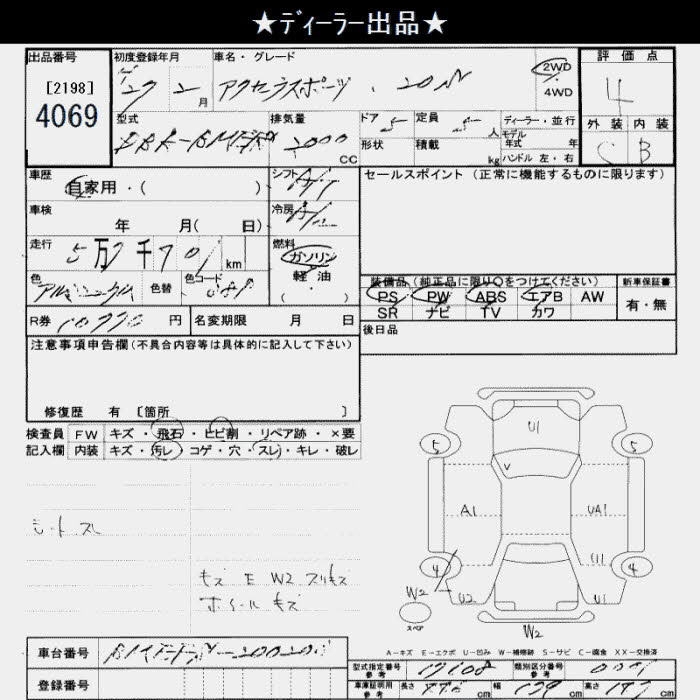 ★ディーラー出品★
出品番号
[2198]
4069
初度登録年月
27 2月
車名・グレード
アクセラスポーツ
2WD
4WD
評価点
4
外装 内装
C B
型式
排気量
2000 CC
ドア 5
形状
定員 5 人
積載 kg
ディーラー・並行
モデル年式 年
ハンドル 左・右
車歴
自家用・( )
シフト
冷房
車検
年 月( 日)
走行
5万7千701km
燃料
ガソリン
軽・油
( ・ )
色
色替
色コード
R券 10770円
名変期限 月 日
セールスポイント(正常に機能するものに限ります)
装備品(純正品に限り○をつけてください)
PS PW ABS エアB AW
SR ナビ TV カワ
新車保証書
有・無
後日品
注意事項申告欄(不具合内容等は具体的に記入して下さい)
修復歴 有 〔箇所 〕
検査員 FW キズ・飛石・ヒビ割・リペア跡・×要
記入欄 内装 キズ・汚レ・コゲ・穴・スレ・キレ・破レ
シート スレ
キズ E W2 スリキズ
ホイール キズ
U1
5
5
V
A1
UA1
U1
4
4
W2
U2
U1
スペア
W2
A-キズ E-エクボ U-凹み W-補修跡 S-サビ C-腐食 XX-交換済
車台番号
登録番号
型式指定番号 参考 17108
類別区分番号 参考
車庫証明用 参考 長さ cm 幅 cm 高さ 147 cm